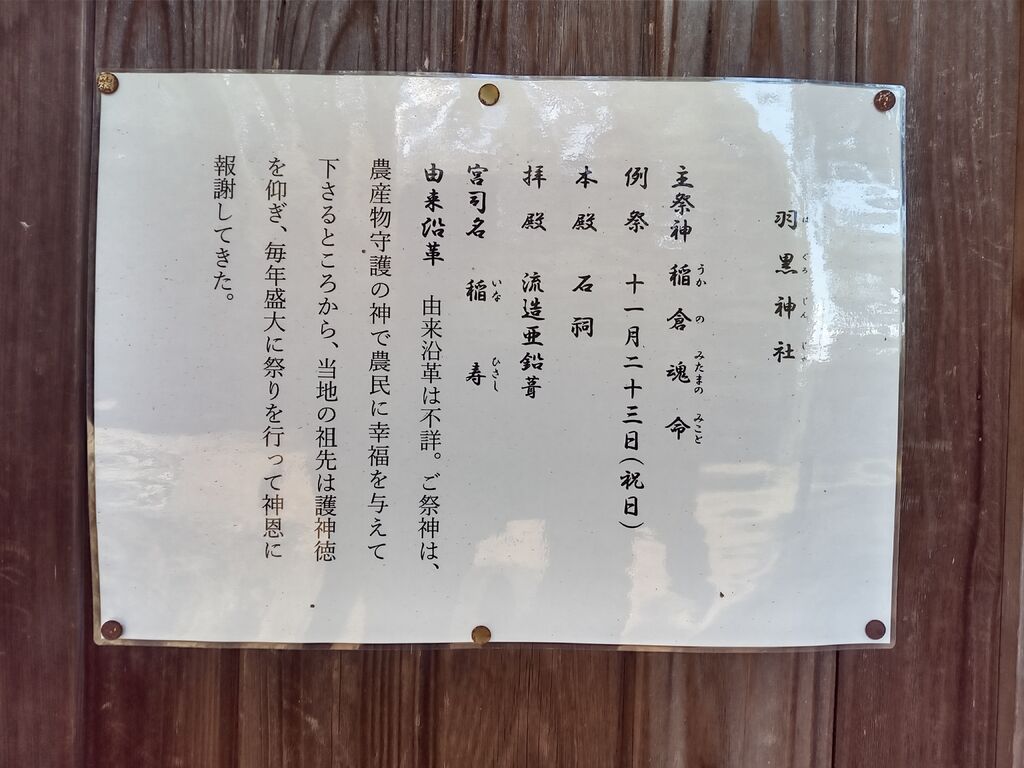 羽黒神社
主祭神 稲倉魂命
例祭 十一月二十三日(祝日)
本殿 石祠
拝殿 流造亜鉛葺
宮司名 稲 寿
由来沿革 由来沿革は不詳。ご祭神は、
農産物守護の神で農民に幸福を与えて
下さるところから、当地の祖先は護神徳
を仰ぎ、毎年盛大に祭りを行って神恩に
報謝してきた。